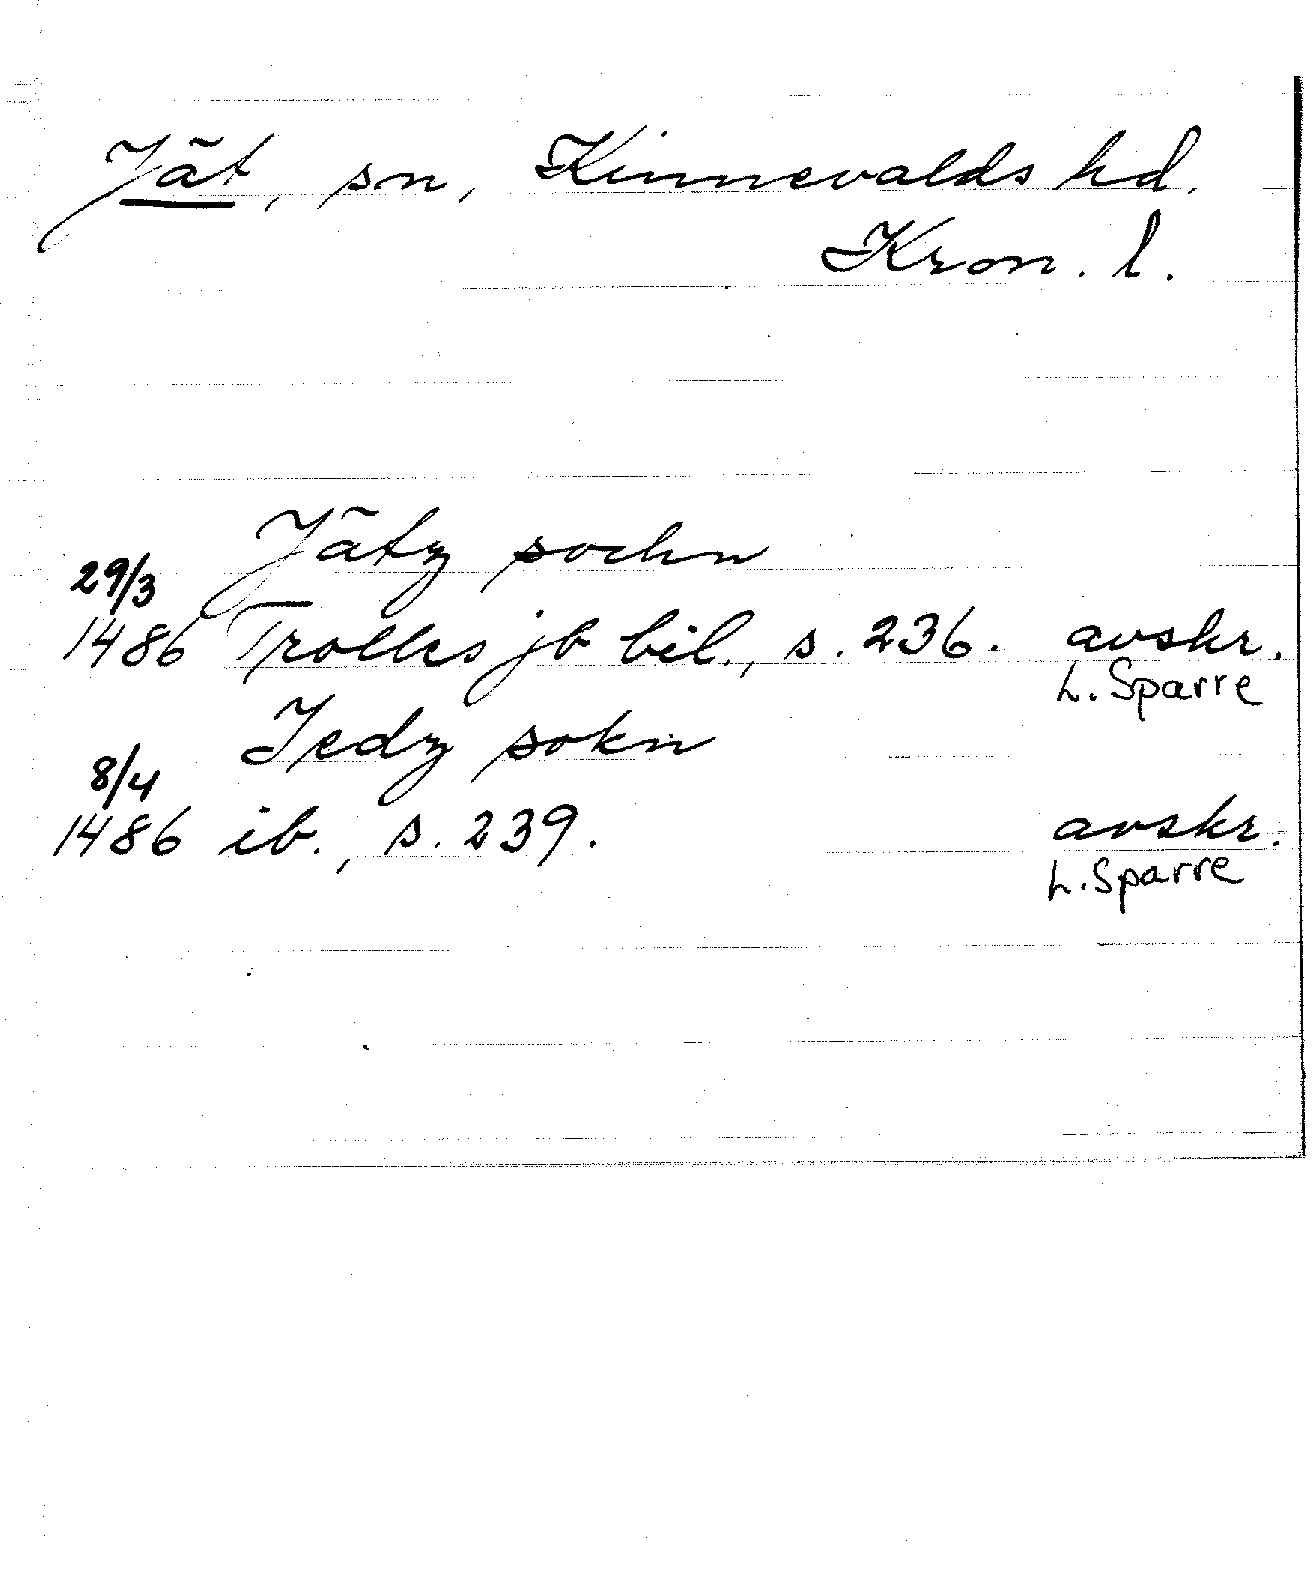 Jät, sn, Kinnevalds hd.
Kron. l.
Jätz sochn
29/3
1486 Trolles jb bil., s. 236. avskr.
L. Sparre
Jedz sokn
8/4
1486 ib., s. 239. avskr.
L. Sparre